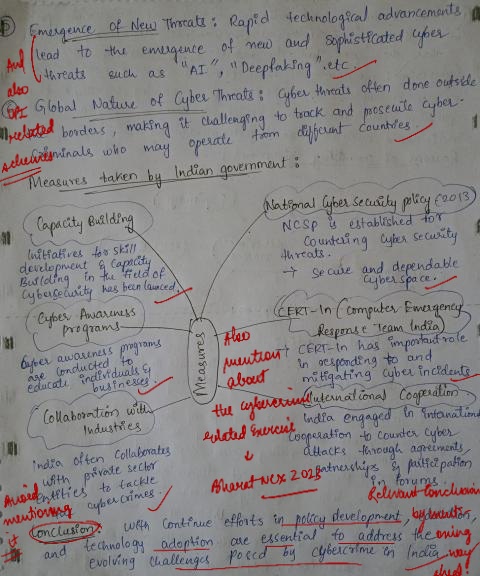 ⑤ Emergence of New Threats: Rapid technological advancements
lead to the emergence of new and sophisticated cyber
threats such as "AI", "Deepfaking".etc
And
also
related
schemes
⑥ Global Nature of Cyber Threats: Cyber threats often done outside
borders, making it challenging to track and prosecute cyber-
criminals who may operate from different countries.
Measures taken by Indian government:
Measures
Capacity Building
Initiatives for skill
development & Capacity
Building in the field of
Cybersecurity has been
Cyber Awareness
Programs
Cyber awareness programs
are conducted to
educate individuals &
businesses.
Collaboration with
Industries
India often collaborates
with private sector
entities to tackle
cybercrimes.
National Cyber Security policy (2013)
NCSP is established for
countering cyber security
threats.
→ Secure and dependable
cyberspace.
CERT-In (Computer Emergency
Response Team India)
→ CERT-In has important role
in responding to and
mitigating cyber incidents
International Cooperation
India engaged in
cooperation to counter cyber
attacks through agreements,
partnerships & participation
in forums.
Also
mention
about
the cybercrime
related Exercise
↓
Bharat NCX 2023
Avoid
mentioning
it
Relevant conclusion
Conclusion: With continue efforts in policy development,
and technology adoption are essential to address the
evolving challenges posed by cybercrime in India
way